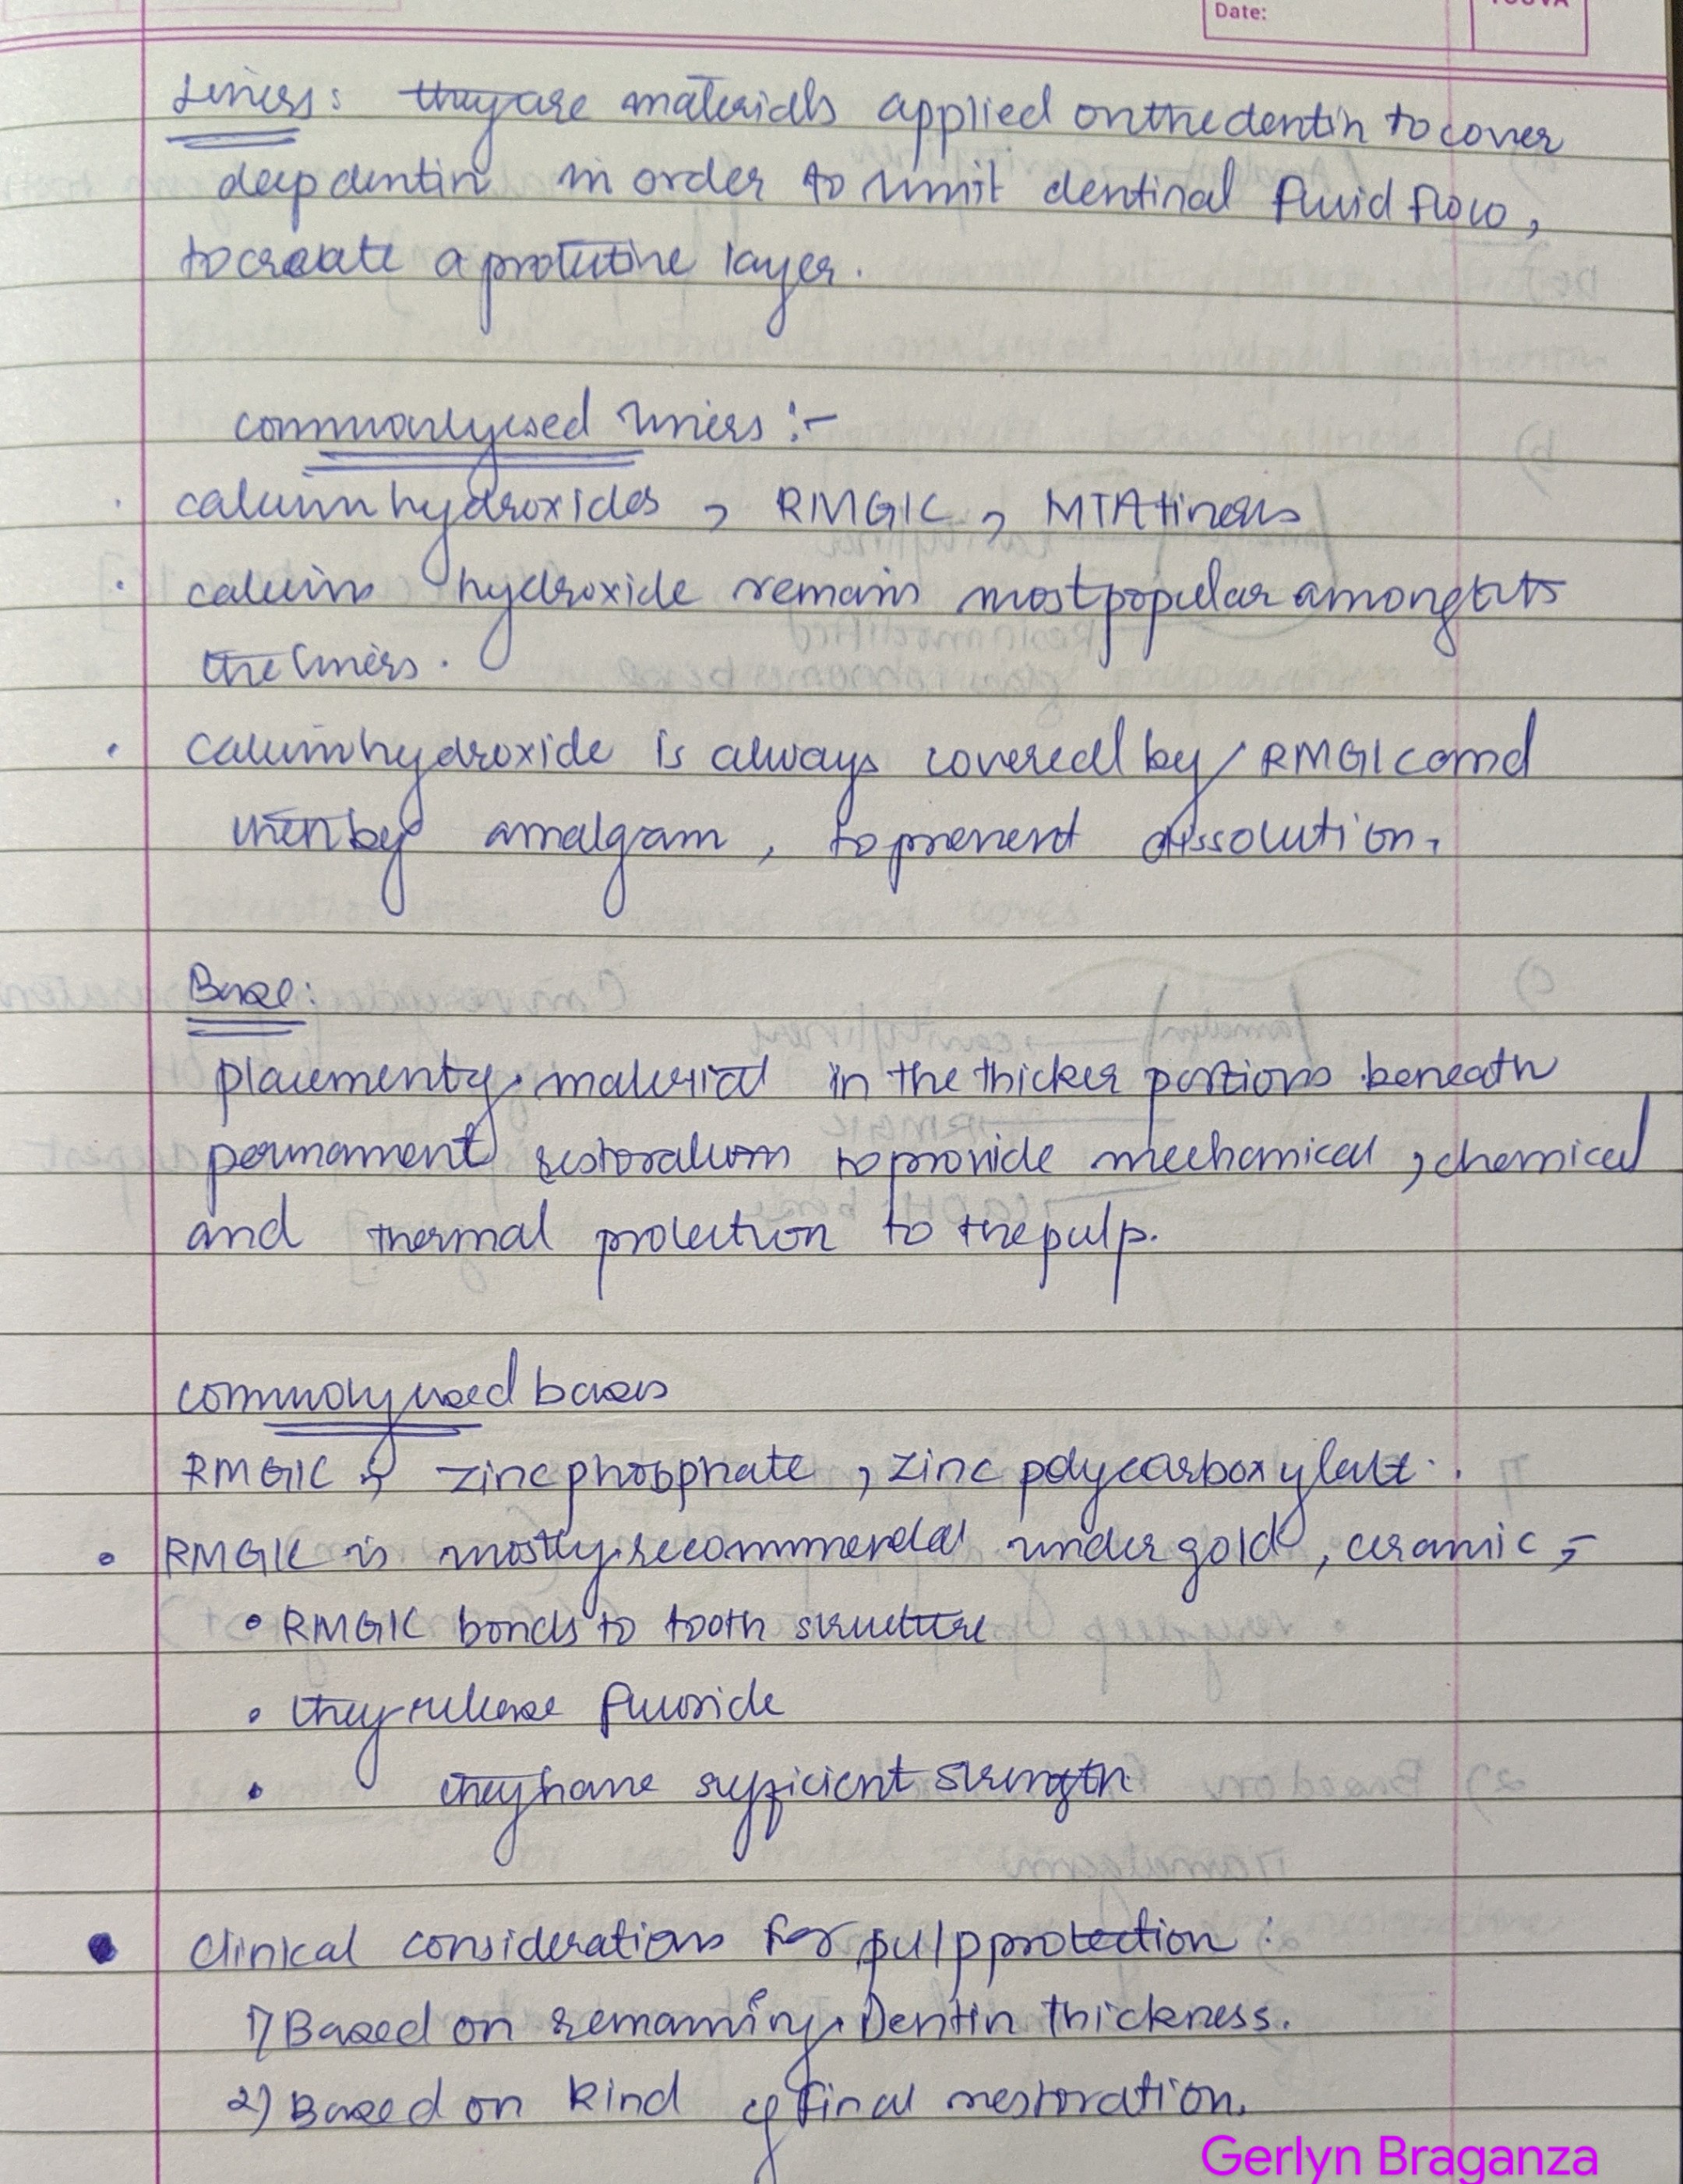 Date:
Liners: they are materials applied on the dentin to cover
deep dentin in order to limit dentinal fluid flow,
to create a protective layer.
commonly used liners :-
calcium hydroxides, RMGIC, MTA liners
calcium hydroxide remain most popular amongst
the liners.
calcium hydroxide is always covered by RMGIC and
then by amalgam, to prevent dissolution.
Base:
placement of material in the thicker portions beneath
permanent restoration to provide mechanical, chemical
and thermal protection to the pulp.
commonly used bases
RMGIC, zinc phosphate, zinc polycarboxylate.
• RMGIC is mostly recommended under gold, ceramic,-
• RMGIC bonds to tooth structure
• they release fluoride
• they have sufficient strength
• Clinical considerations for pulp protection:
1) Based on remaining Dentin thickness.
2) Based on kind of final restoration.
Gerlyn Braganza